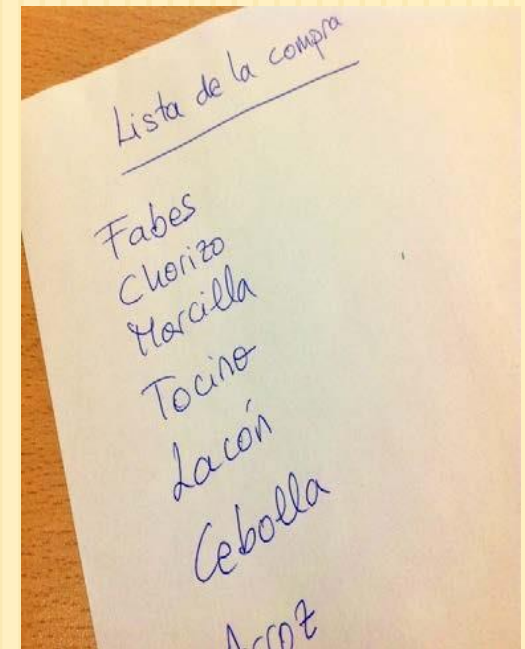 Lista de la compra
Fabes
Chorizo
Morcilla
Tocino
Lacón
Cebolla
Arroz